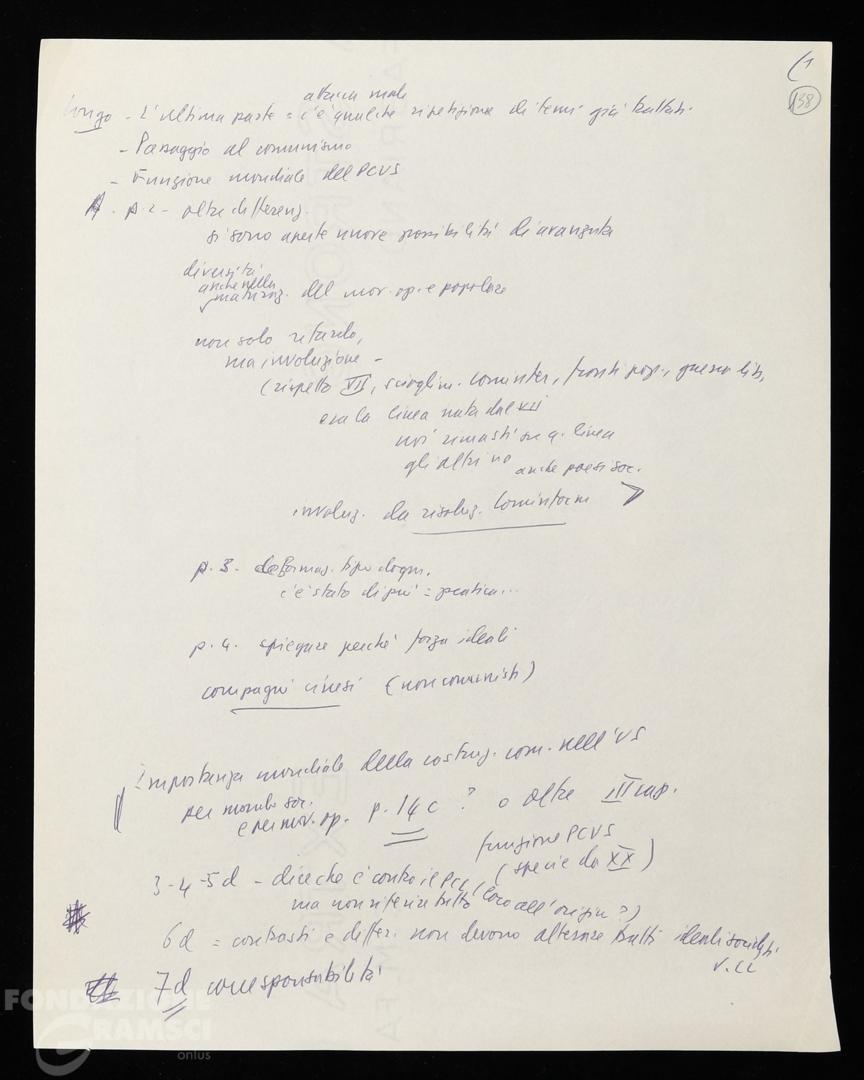 (1
138
Longo - L'ultima parte = c'è qualche ripetizione di temi già trattati.
- Passaggio al comunismo
- Funzione mondiale del PCUS
p. 2 - oltre differenz.
si sono aperte nuove possibilità di avanzata
diversità
anche nella
maturaz. del mov. op. e popolare
non solo ritardo,
ma involuzione -
(rispetto VII, scioglim. Comintern, fronti pop., guerra lib.,
era la linea nata dal VII
noi rimasti su q. linea
gli altri no anche paesi soc.
involuz. da risoluz. Cominform
p. 3 - deformaz. tipo dogm.
c'è stato di più = pratica...
p. 4. spiegare perché forza ideali
compagni cinesi (non comunisti)
Importanza mondiale della costruz. com. nell'US
per mondo soc.
e per mov. op. p. 14 c ? o oltre III cap.
funzione PCUS
(specie da XX)
3-4-5d - dice che è contro il PCC (loro all'origin?)
ma non riferire tutto
6d = contrasti e differ. non devono alterare tratti ideali socialisti
V. CC
7d corresponsabilità
FONDAZIONE
GRAMSCI
onlus